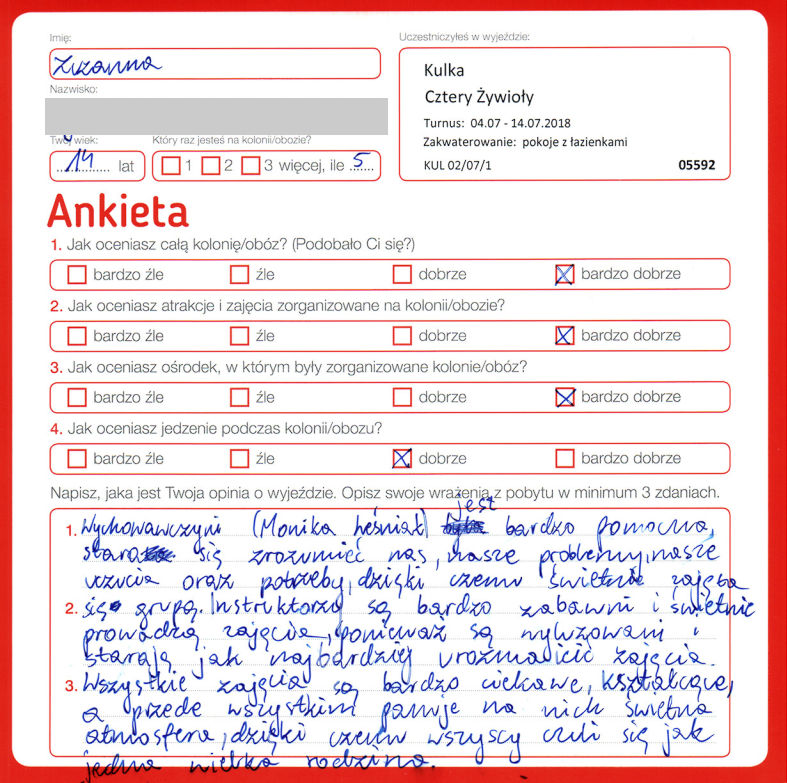 Imię:
Zuzanna
Nazwisko:
Twój wiek:
14 lat
Który raz jesteś na kolonii/obozie?
1 2 3 więcej, ile 5
Uczestniczyłeś w wyjeździe:
Kulka
Cztery Żywioły
Turnus: 04.07 - 14.07.2018
Zakwaterowanie: pokoje z łazienkami
KUL 02/07/1 05592
Ankieta
1. Jak oceniasz całą kolonię/obóz? (Podobało Ci się?)
bardzo źle źle dobrze bardzo dobrze
2. Jak oceniasz atrakcje i zajęcia zorganizowane na kolonii/obozie?
bardzo źle źle dobrze bardzo dobrze
3. Jak oceniasz ośrodek, w którym były zorganizowane kolonie/obóz?
bardzo źle źle dobrze bardzo dobrze
4. Jak oceniasz jedzenie podczas kolonii/obozu?
bardzo źle źle dobrze bardzo dobrze
Napisz, jaka jest Twoja opinia o wyjeździe. Opisz swoje wrażenia z pobytu w minimum 3 zdaniach.
1. Wychowawczyni (Monika Leśniak) jest bardzo pomocna,
stara się zrozumieć nas, nasze problemy, nasze
uczucia oraz potrzeby, dzięki czemu świetnie zajęła
2. się grupą. Instruktorzy są bardzo zabawni i świetnie
prowadzą zajęcia, ponieważ są wyluzowani i
starają jak najbardziej urozmaicić zajęcia.
3. Wszystkie zajęcia są bardzo ciekawe, kształcące,
a przede wszystkim panuje na nich świetna
atmosfera, dzięki czemu wszyscy czuli się jak
jedna wielka rodzina.